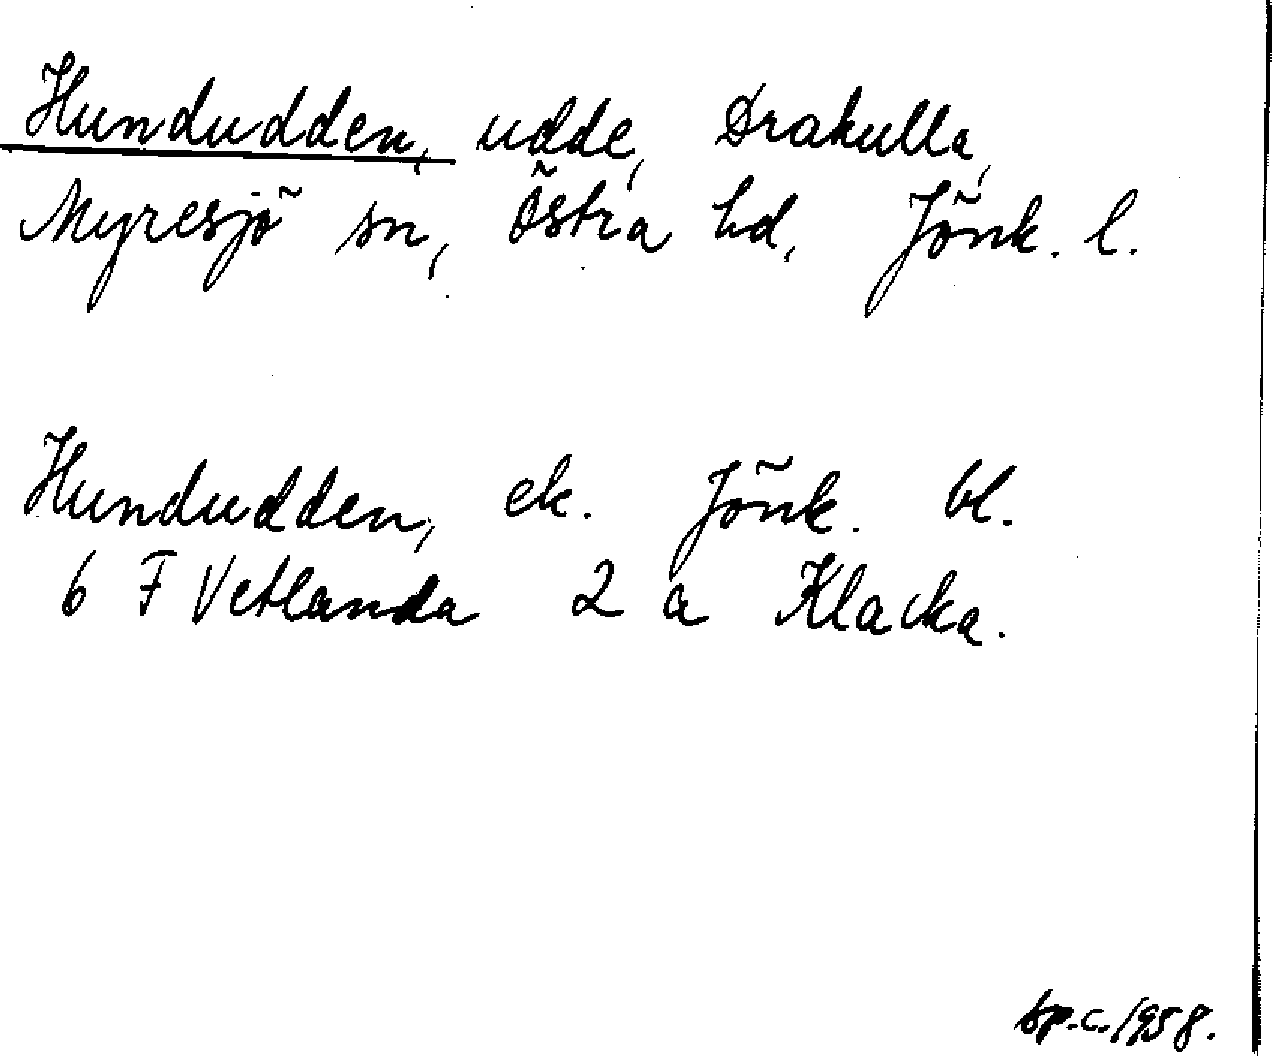 Hundudden, udde, Drakulla,
Myresjö sn, Östra hd, Jönk. l.
Hundudden, ek. Jönk. bl.
6 F Vetlanda 2 a Klacka.
bp.c. 1958.